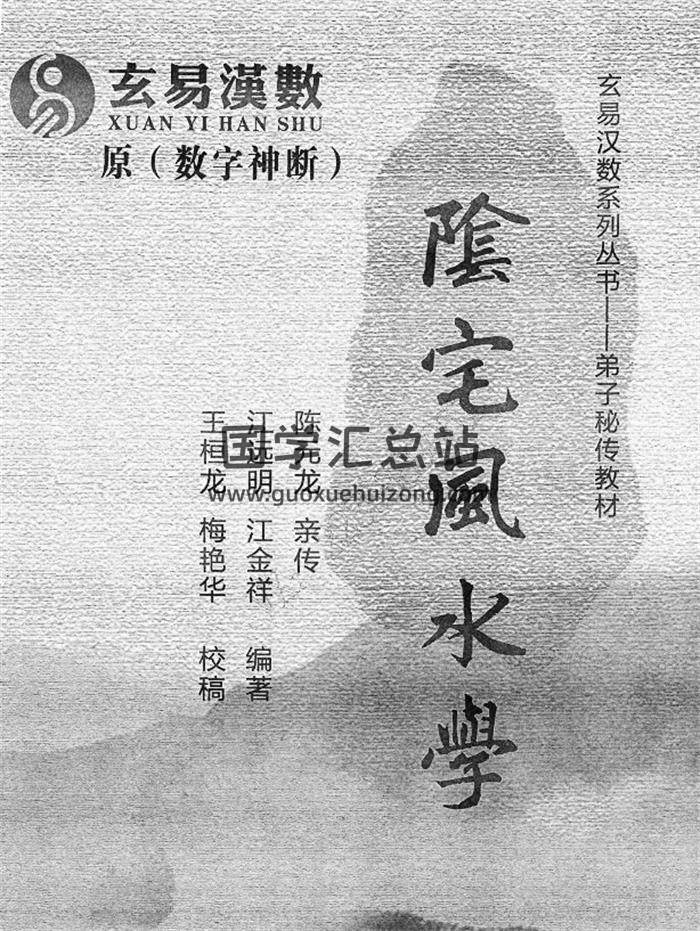 玄易漢數
XUAN YI HAN SHU
原（数字神断）
玄易汉数系列丛书——弟子秘传教材
陰宅風水學
陈元龙 亲传
江远明 江金祥 编著
王桓龙 梅艳华 校稿
国学汇总站
www.guoxuehuizong.com